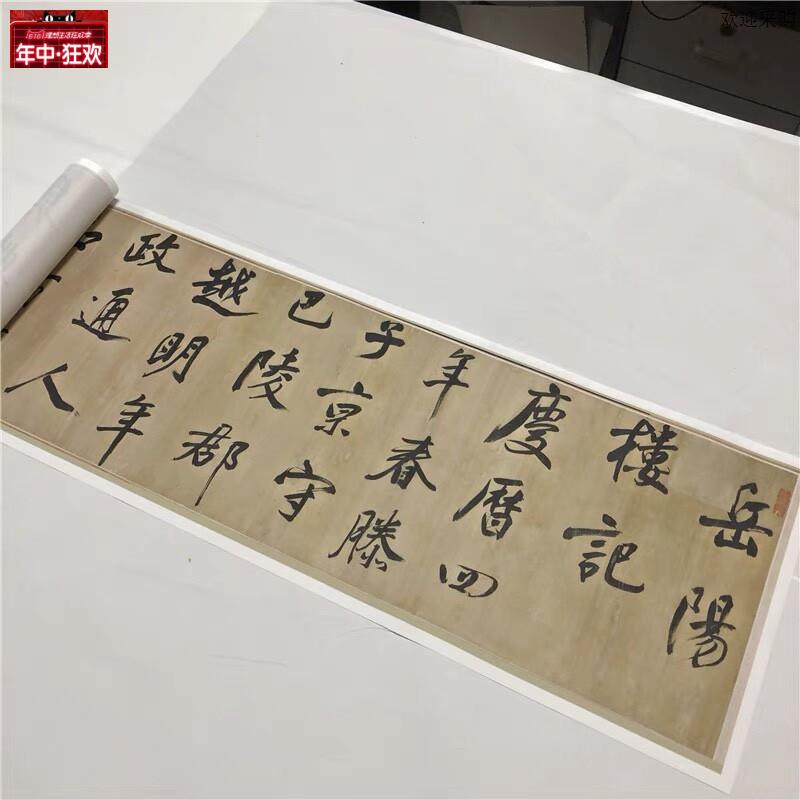 618理想生活狂欢季
年中·狂欢
欢迎采购
岳陽
樓記
慶曆四
年春滕
子京守
巴陵郡
越明年
政通人